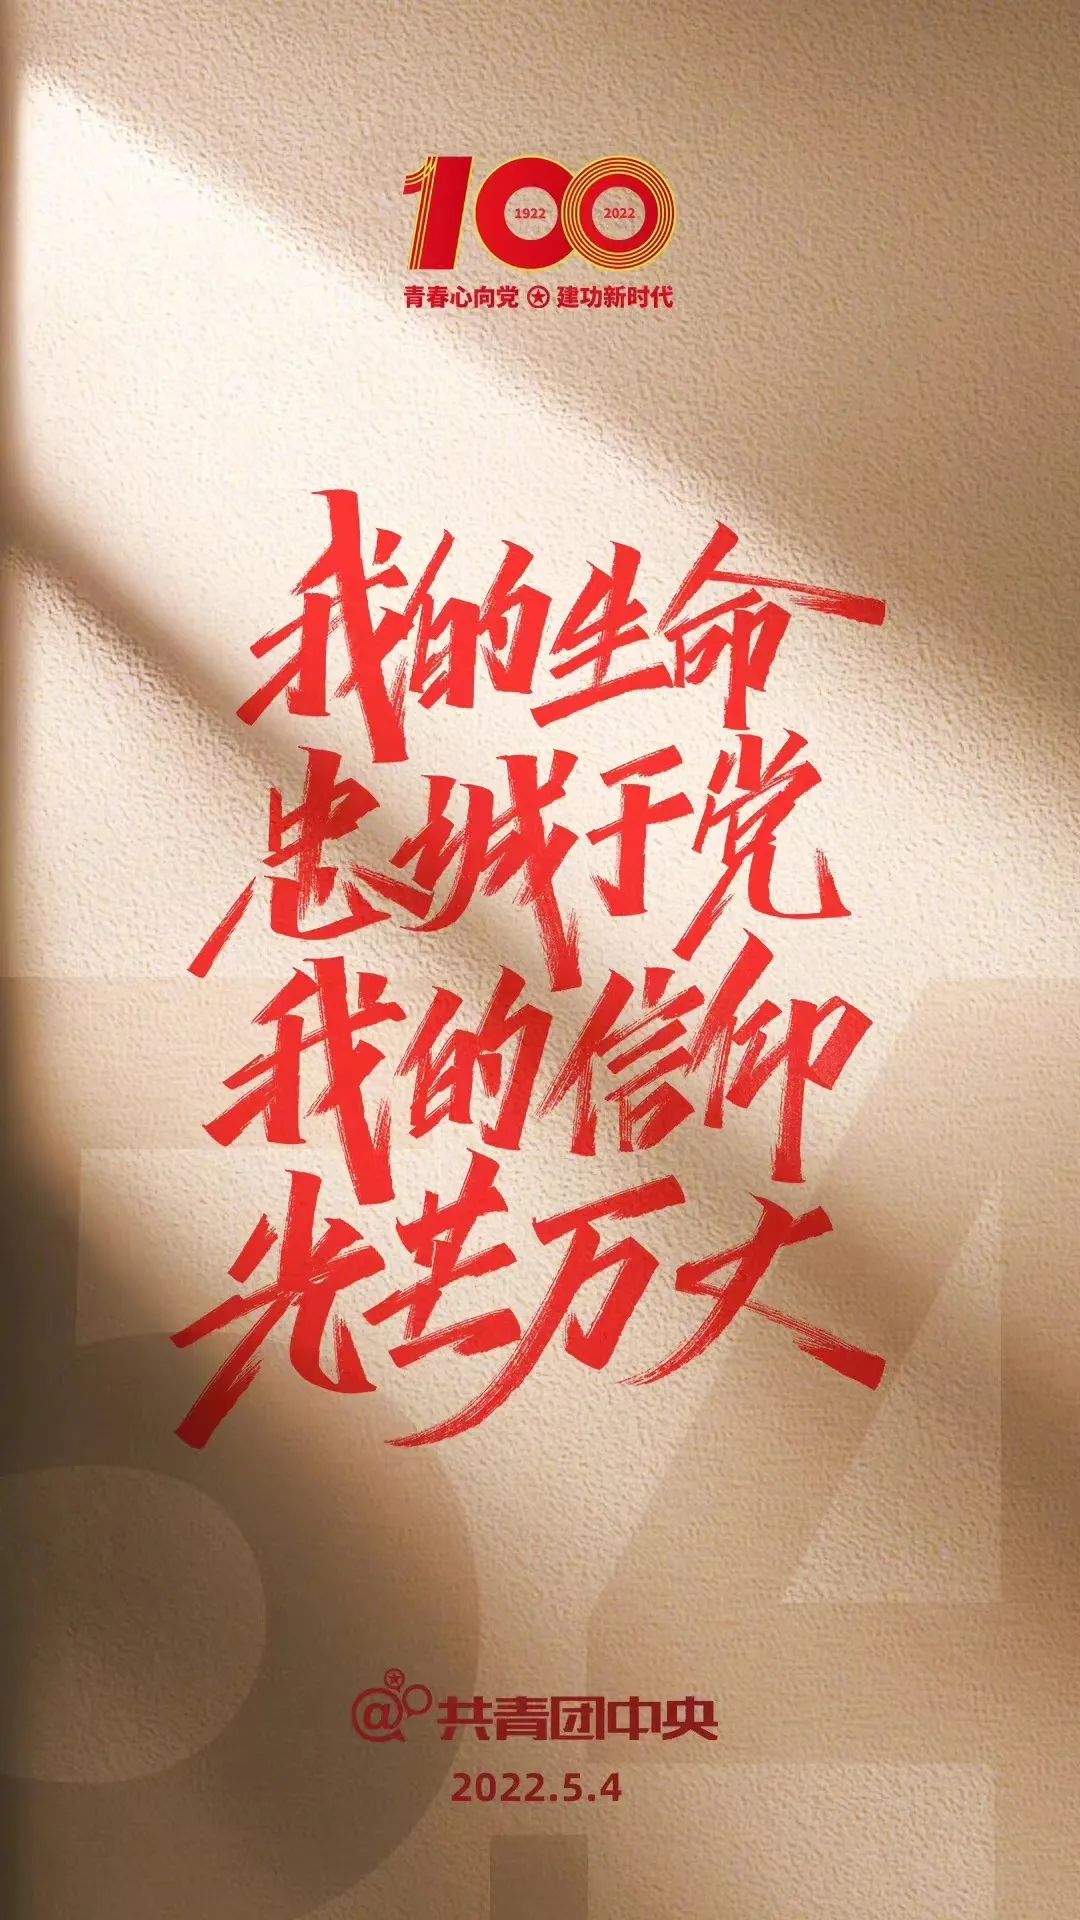 100
1922 2022
青春心向党 建功新时代
我的生命
忠诚于党
我的信仰
光芒万丈
@共青团中央
2022.5.4
5.4